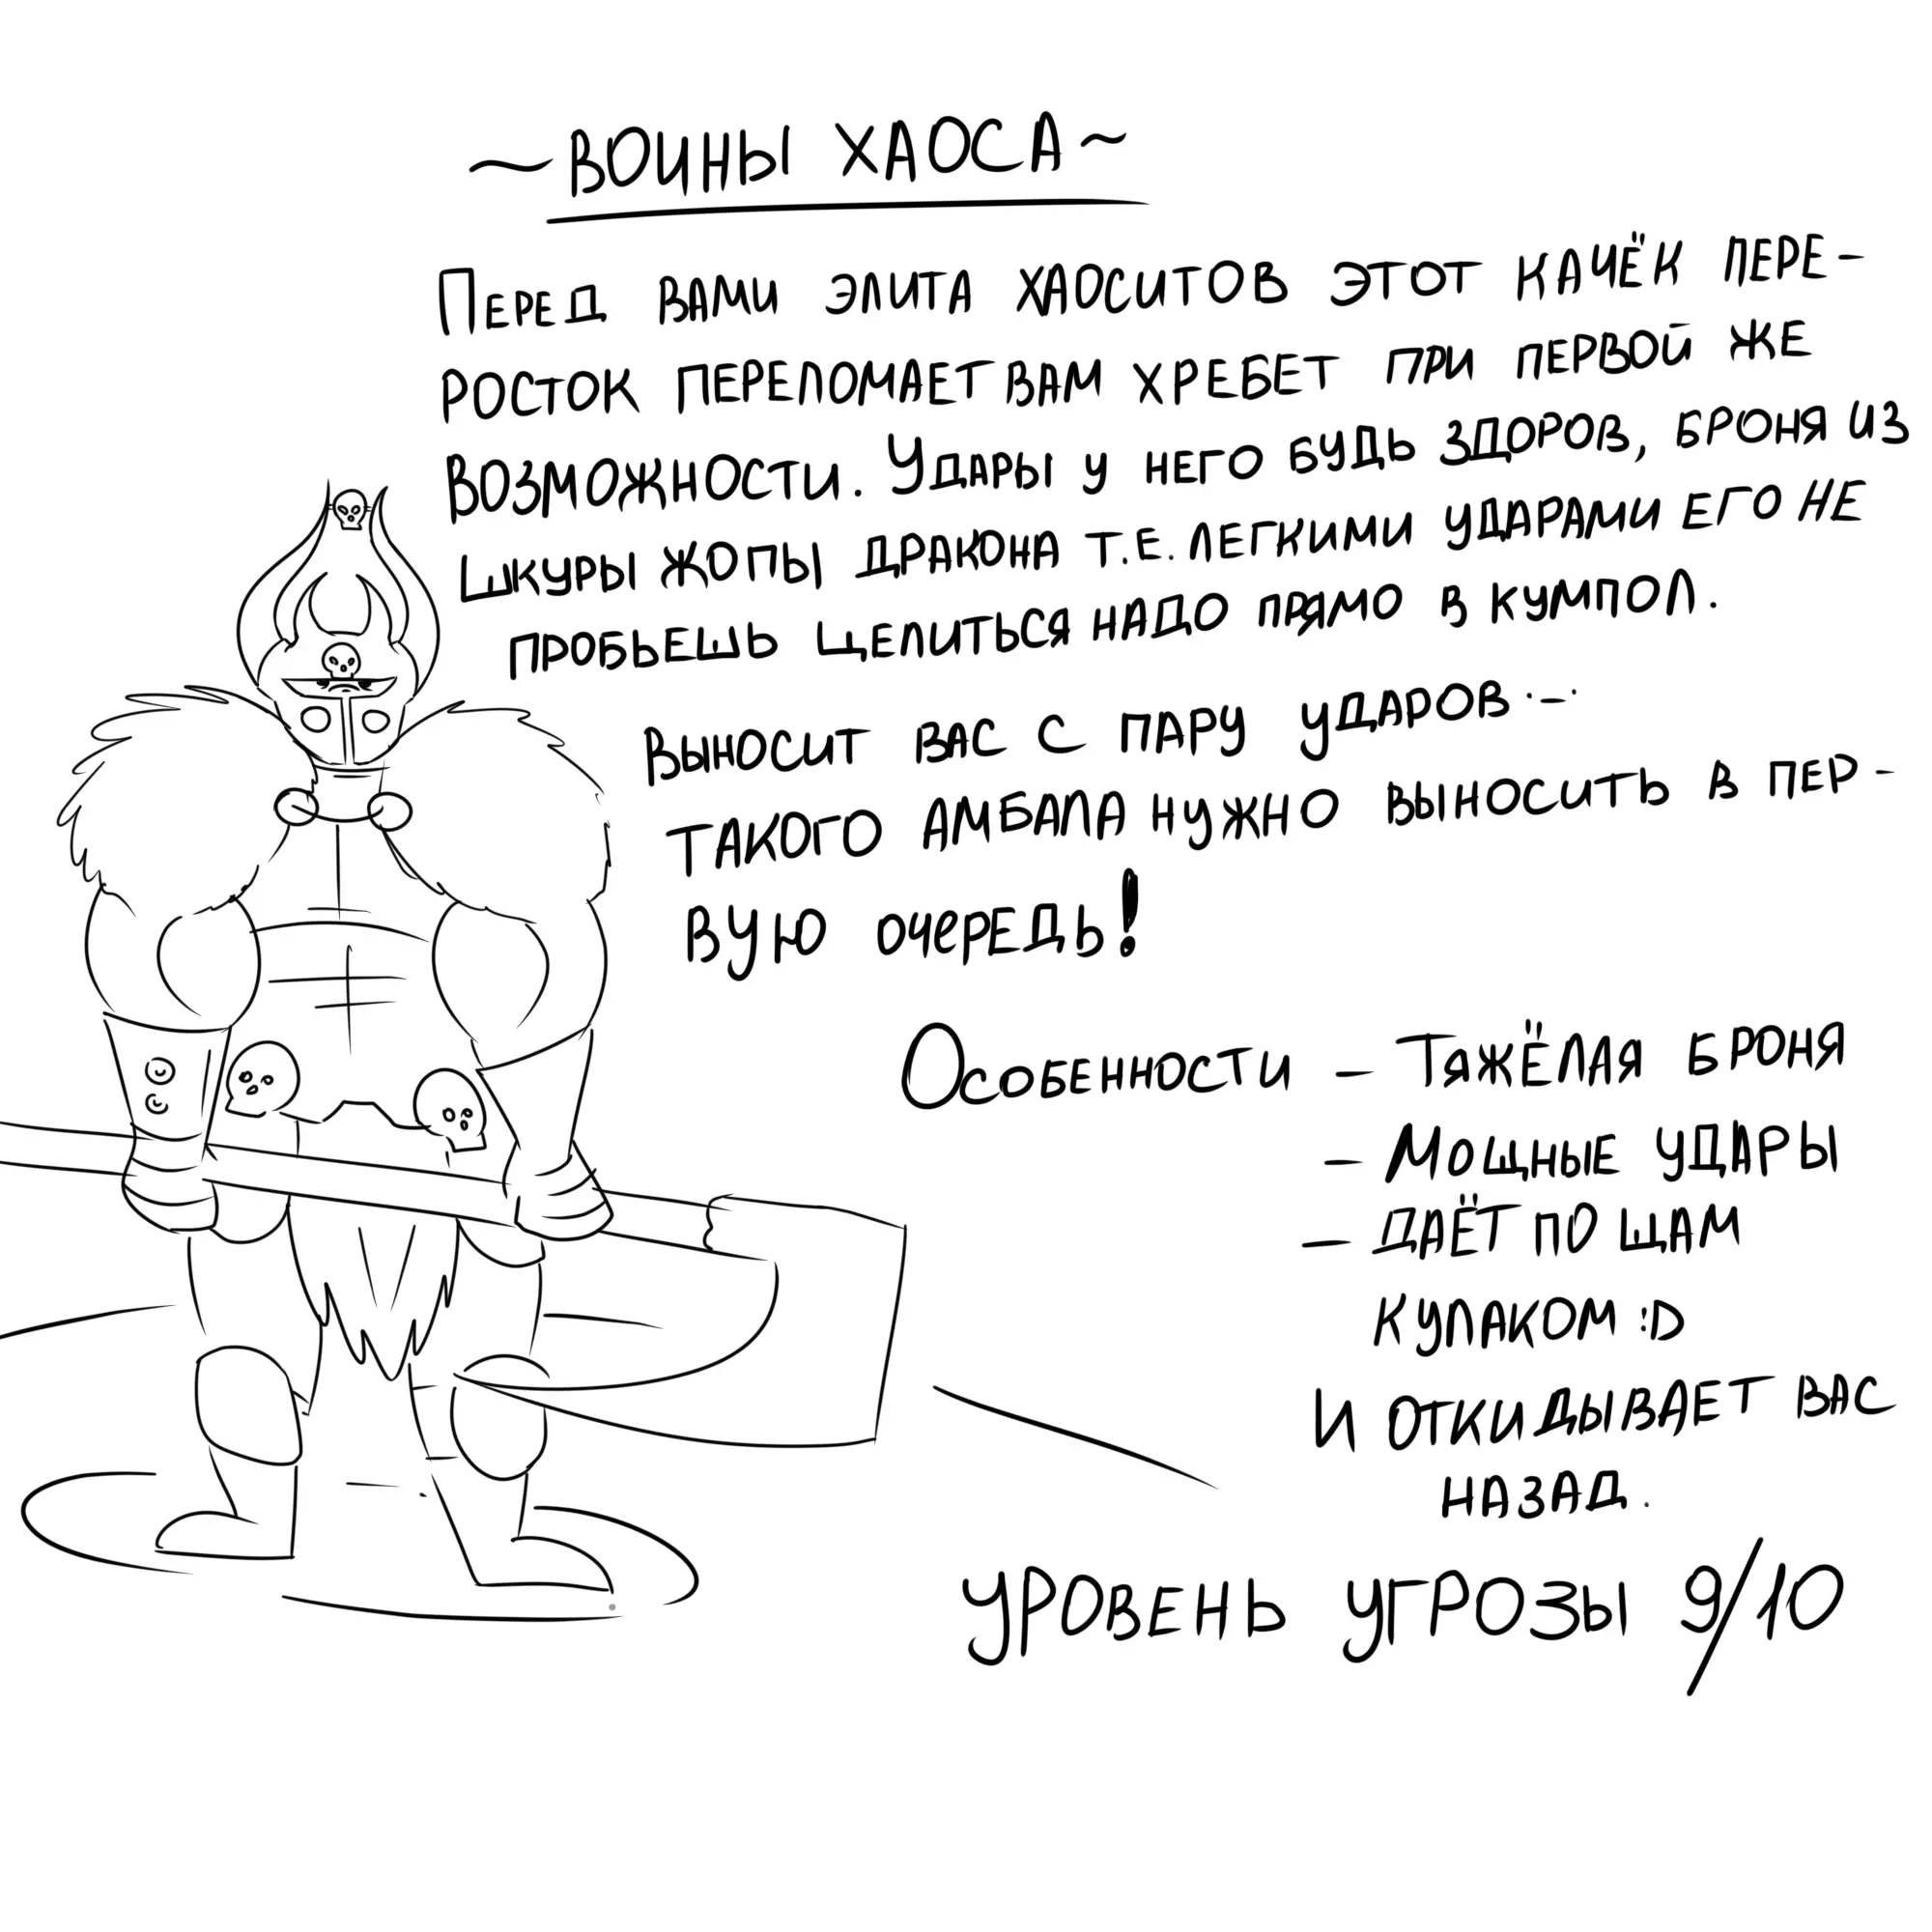 ~ВОИНЫ ХАОСА~
ПЕРЕД ВАМИ ЭЛИТА ХАОСИТОВ ЭТОТ КАЧЁК ПЕРЕ-
РОСТОК ПЕРЕЛОМАЕТ ВАМ ХРЕБЕТ ПРИ ПЕРВОЙ ЖЕ
ВОЗМОЖНОСТИ. УДАРЫ У НЕГО БУДЬ ЗДОРОВ, БРОНЯ ИЗ
ШКУРЫ ЖОПЫ ДРАКОНА Т.Е. ЛЕГКИМИ УДАРАМИ ЕГО НЕ
ПРОБЬЕШЬ ЩЕЛИТЬСЯ НАДО ПРЯМО В КУМПОЛ.
ВЫНОСИТ ВАС С ПАРУ УДАРОВ ·-·
ТАКОГО АМБАЛА НУЖНО ВЫНОСИТЬ В ПЕР-
ВУЮ ОЧЕРЕДЬ!
ОСОБЕННОСТИ - ТЯЖЁЛАЯ БРОНЯ
- МОЩНЫЕ УДАРЫ
- ДАЁТ ПО ЩАМ
КУЛАКОМ :D
И ОТКИДЫВАЕТ ВАС
НАЗАД.
УРОВЕНЬ УГРОЗЫ 9/10